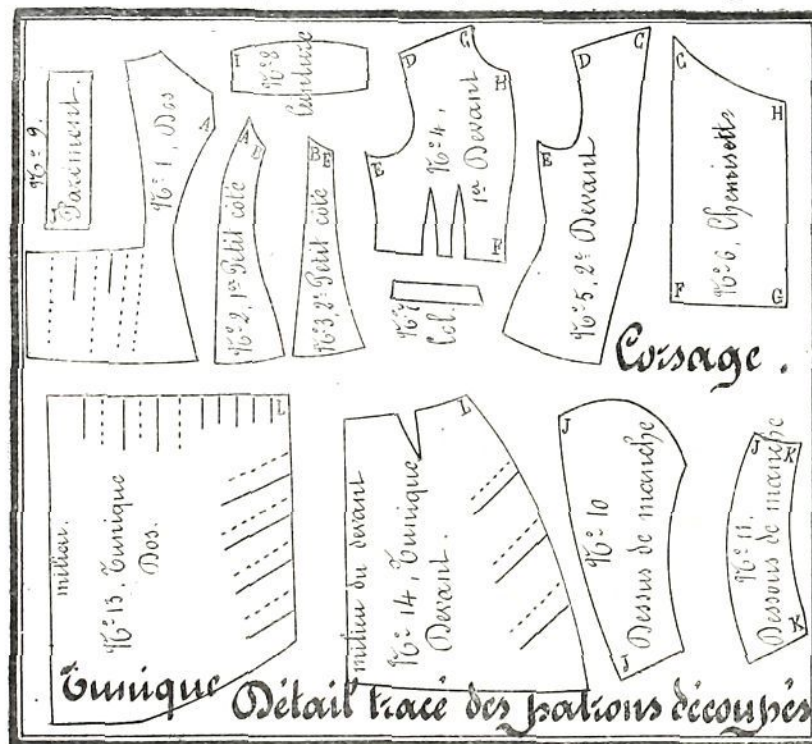 Nº 9.
Pariment.
Nº 1, Dos
A
I
Nº 8
Ceinture
A
B
Nº 2, 1er Petit côté
B E
Nº 3, 2e Petit côté
D
C
H
E
F
Nº 4,
1er Devant
Nº 7
Col.
D
C
E
Nº 5, 2e Devant
C
H
F
G
Nº 6, Chemisette
Corsage.
milieu.
Nº 13, Tunique
Dos.
L
milieu du devant
Nº 14, Tunique
Devant.
L
J
J
Nº 10
Dessus de manche
J
K
K
Nº 11.
Dessous de manche
Tunique
Détail tracé des patrons découpés